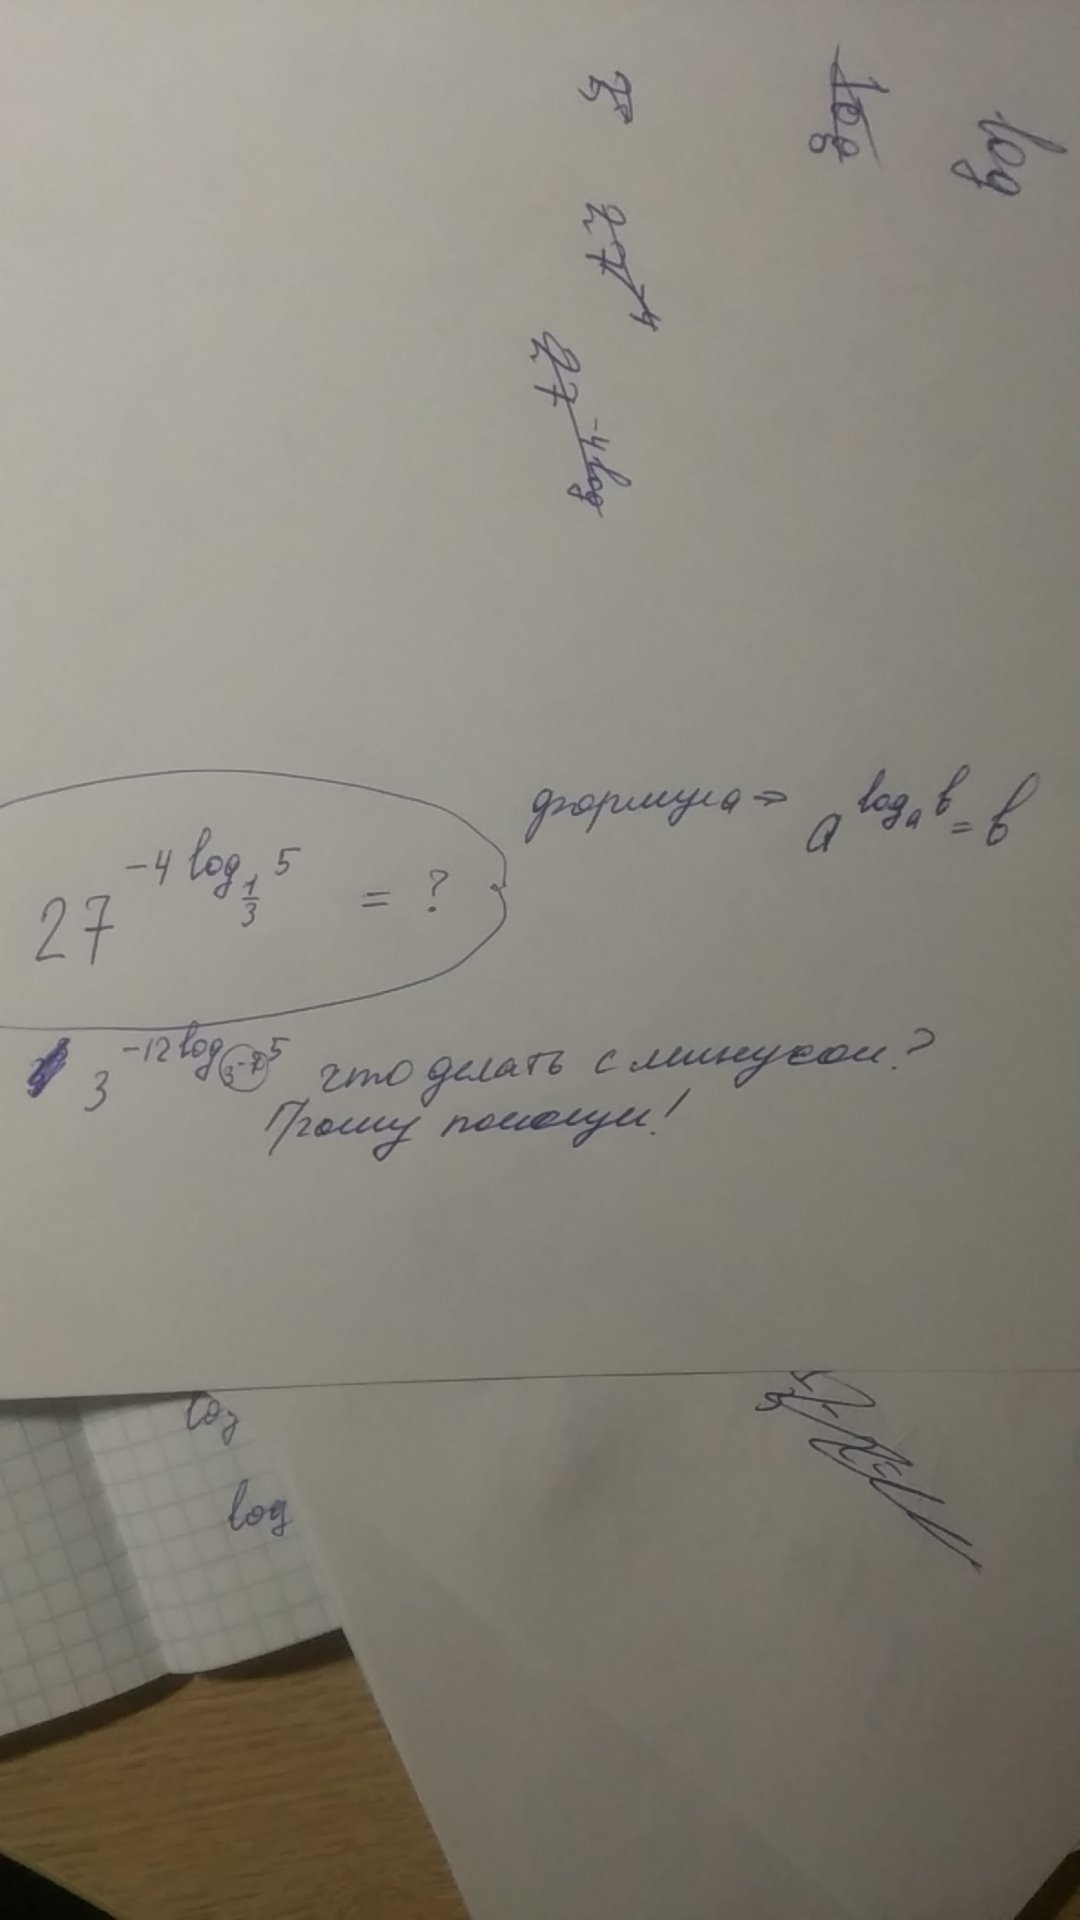 log
log
27
27⁴
27^(-4log
формула → a^(log_a b) = b
27^(-4 log_(1/3) 5) = ?
3^(-12 log_(3^-1) 5) что делать с минусом?
Прошу помощи!
log
log